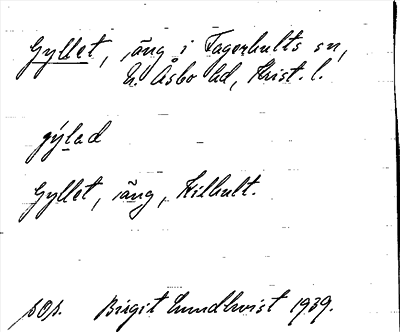 Gyllet, äng i Fagerhults sn,
N. Åsbo hd, Krist. l.
gýlad
Gyllet, äng, Kilhult.
sos. Birgit Lundkvist 1939.